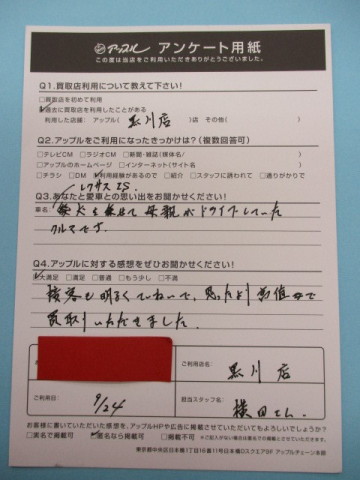 アップル アンケート用紙
この度は当店をご利用いただきありがとうございました。
Q1.買取店利用について教えて下さい!
□買取店を初めて利用
☑過去に買取店を利用したことがある
利用した店舗: アップル( 黒川店 )店 その他( )
Q2.アップルをご利用になったきっかけは?(複数回答可)
□テレビCM □ラジオCM □新聞・雑誌(媒体名/ )
□アップルのホームページ □インターネット(サイト名 )
□チラシ □DM ☑利用経験があるので □紹介 □スタッフに誘われて □通りがかりで
Q3.あなたと愛車との思い出をお聞かせください!
車名: レクサス IS
愛犬を乗せて母親がドライブしていた
クルマです。
Q4.アップルに対する感想をぜひお聞かせください!
☑大満足 □満足 □普通 □もう少し □不満
接客も明るくていねいで、思ったより高値で
買取りいただきました。
ご利用店名: 黒川店
ご利用日: 9/24
担当スタッフ名: 横田さん
お客様に書いていただいた感想を、アップルHPや広告に掲載させていただいてもよろしいでしょうか?
□実名で掲載可 ☑匿名なら掲載可 □掲載不可 ※ご記入がない場合は匿名での掲載とさせていただきます。
東京都中央区日本橋1丁目16番11号日本橋Dスクエア5F アップルチェーン本部